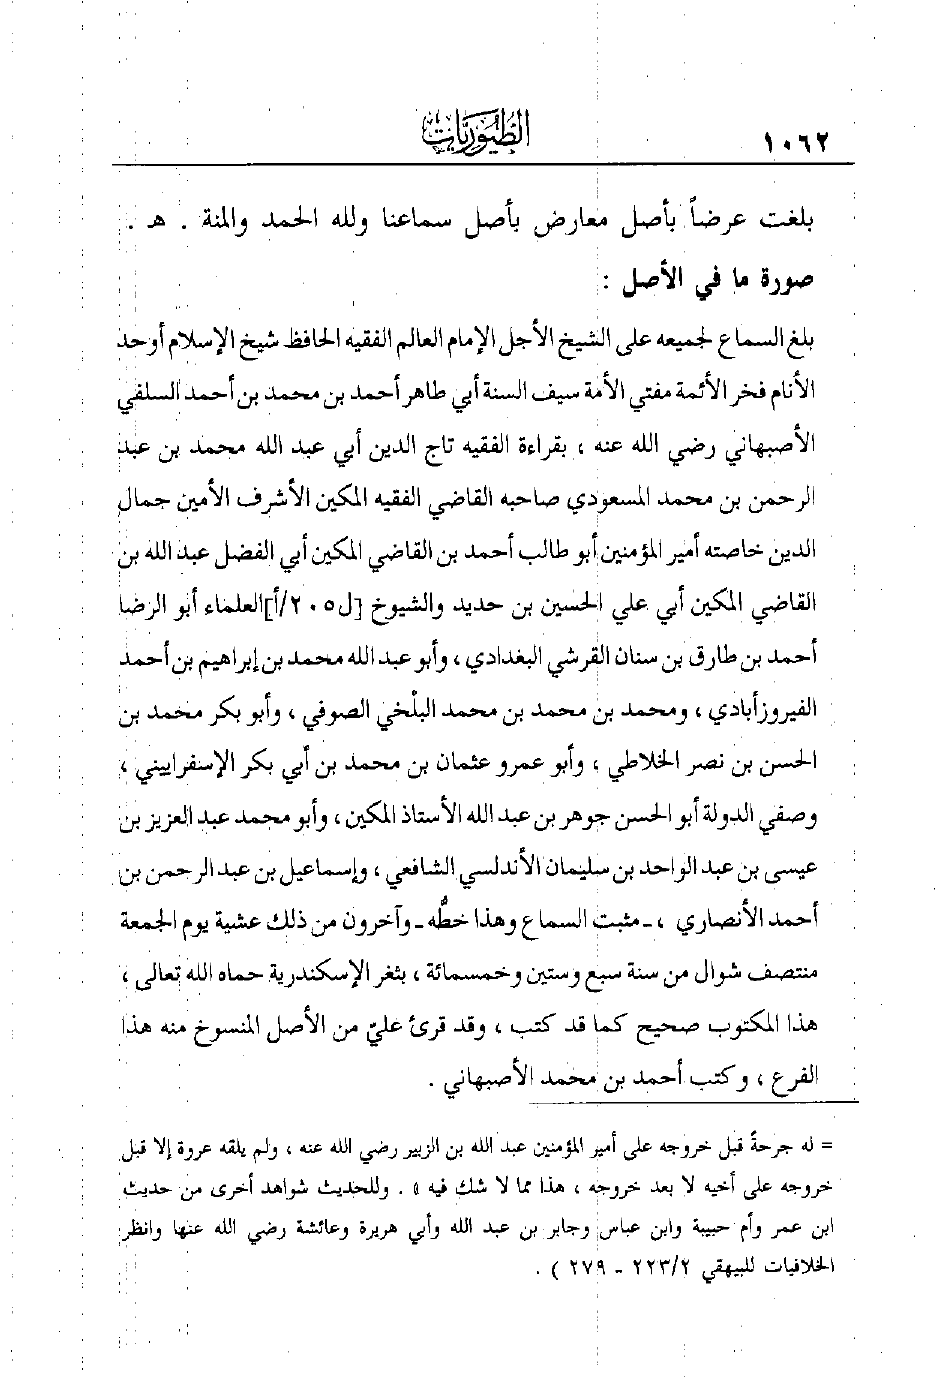 ١٠٦٢
الطيوريات
بلغت عرضاً بأصل معارض بأصل سماعنا ولله الحمد والمنة . هـ .
صورة ما في الأصل :
بلغ السماع لجميعه على الشيخ الأجل الإمام العالم الفقيه الحافظ شيخ الإسلام أوحد
الأنام فخر الأئمة مفتي الأمة سيف السنة أبي طاهر أحمد بن محمد بن أحمد السلفي
الأصبهاني رضي الله عنه ، بقراءة الفقيه تاج الدين أبي عبد الله محمد بن عبد
الرحمن بن محمد المسعودي صاحبه القاضي الفقيه المكين الأشرف الأمين جمال
الدين خاصته أمير المؤمنين أبو طالب أحمد بن القاضي المكين أبي الفضل عبد الله بن
القاضي المكين أبي علي الحسين بن حديد والشيوخ [ل٢٠٥/أ]العلماء أبو الرضا
أحمد بن طارق بن سنان القرشي البغدادي ، وأبو عبد الله محمد بن إبراهيم بن أحمد
الفيروزأبادي ، ومحمد بن محمد بن محمد البلْخي الصوفي ، وأبو بكر محمد بن
الحسن بن نصر الخلاطي ، وأبو عمرو عثمان بن محمد بن أبي بكر الإسفراييني ،
وصفي الدولة أبو الحسن جوهر بن عبد الله الأستاذ المكين ، وأبو محمد عبد العزيز بن
عيسى بن عبد الواحد بن سليمان الأندلسي الشافعي ، وإسماعيل بن عبد الرحمن بن
أحمد الأنصاري ، ـ مثبت السماع وهذا خطُّه ـ وآخرون من ذلك عشية يوم الجمعة
منتصف شوال من سنة سبع وستين وخمسمائة ، بثغر الإسكندرية حماه الله تعالى ،
هذا المكتوب صحيح كما قد كتب ، وقد قرئ عليّ من الأصل المنسوخ منه هذا
الفرع ، وكتب أحمد بن محمد الأصبهاني .
= له جرحةً قبل خروجه على أمير المؤمنين عبد الله بن الزبير رضي الله عنه ، ولم يلقه عروة إلا قبل
خروجه على أخيه لا بعد خروجه ، هذا مما لا شك فيه » . وللحديث شواهد أخرى من حديث
ابن عمر وأم حبيبة وابن عباس وجابر بن عبد الله وأبي هريرة وعائشة رضي الله عنها وانظر
الخلافيات للبيهقي ٢/ ٢٢٣ ـ ٢٧٩ ) .